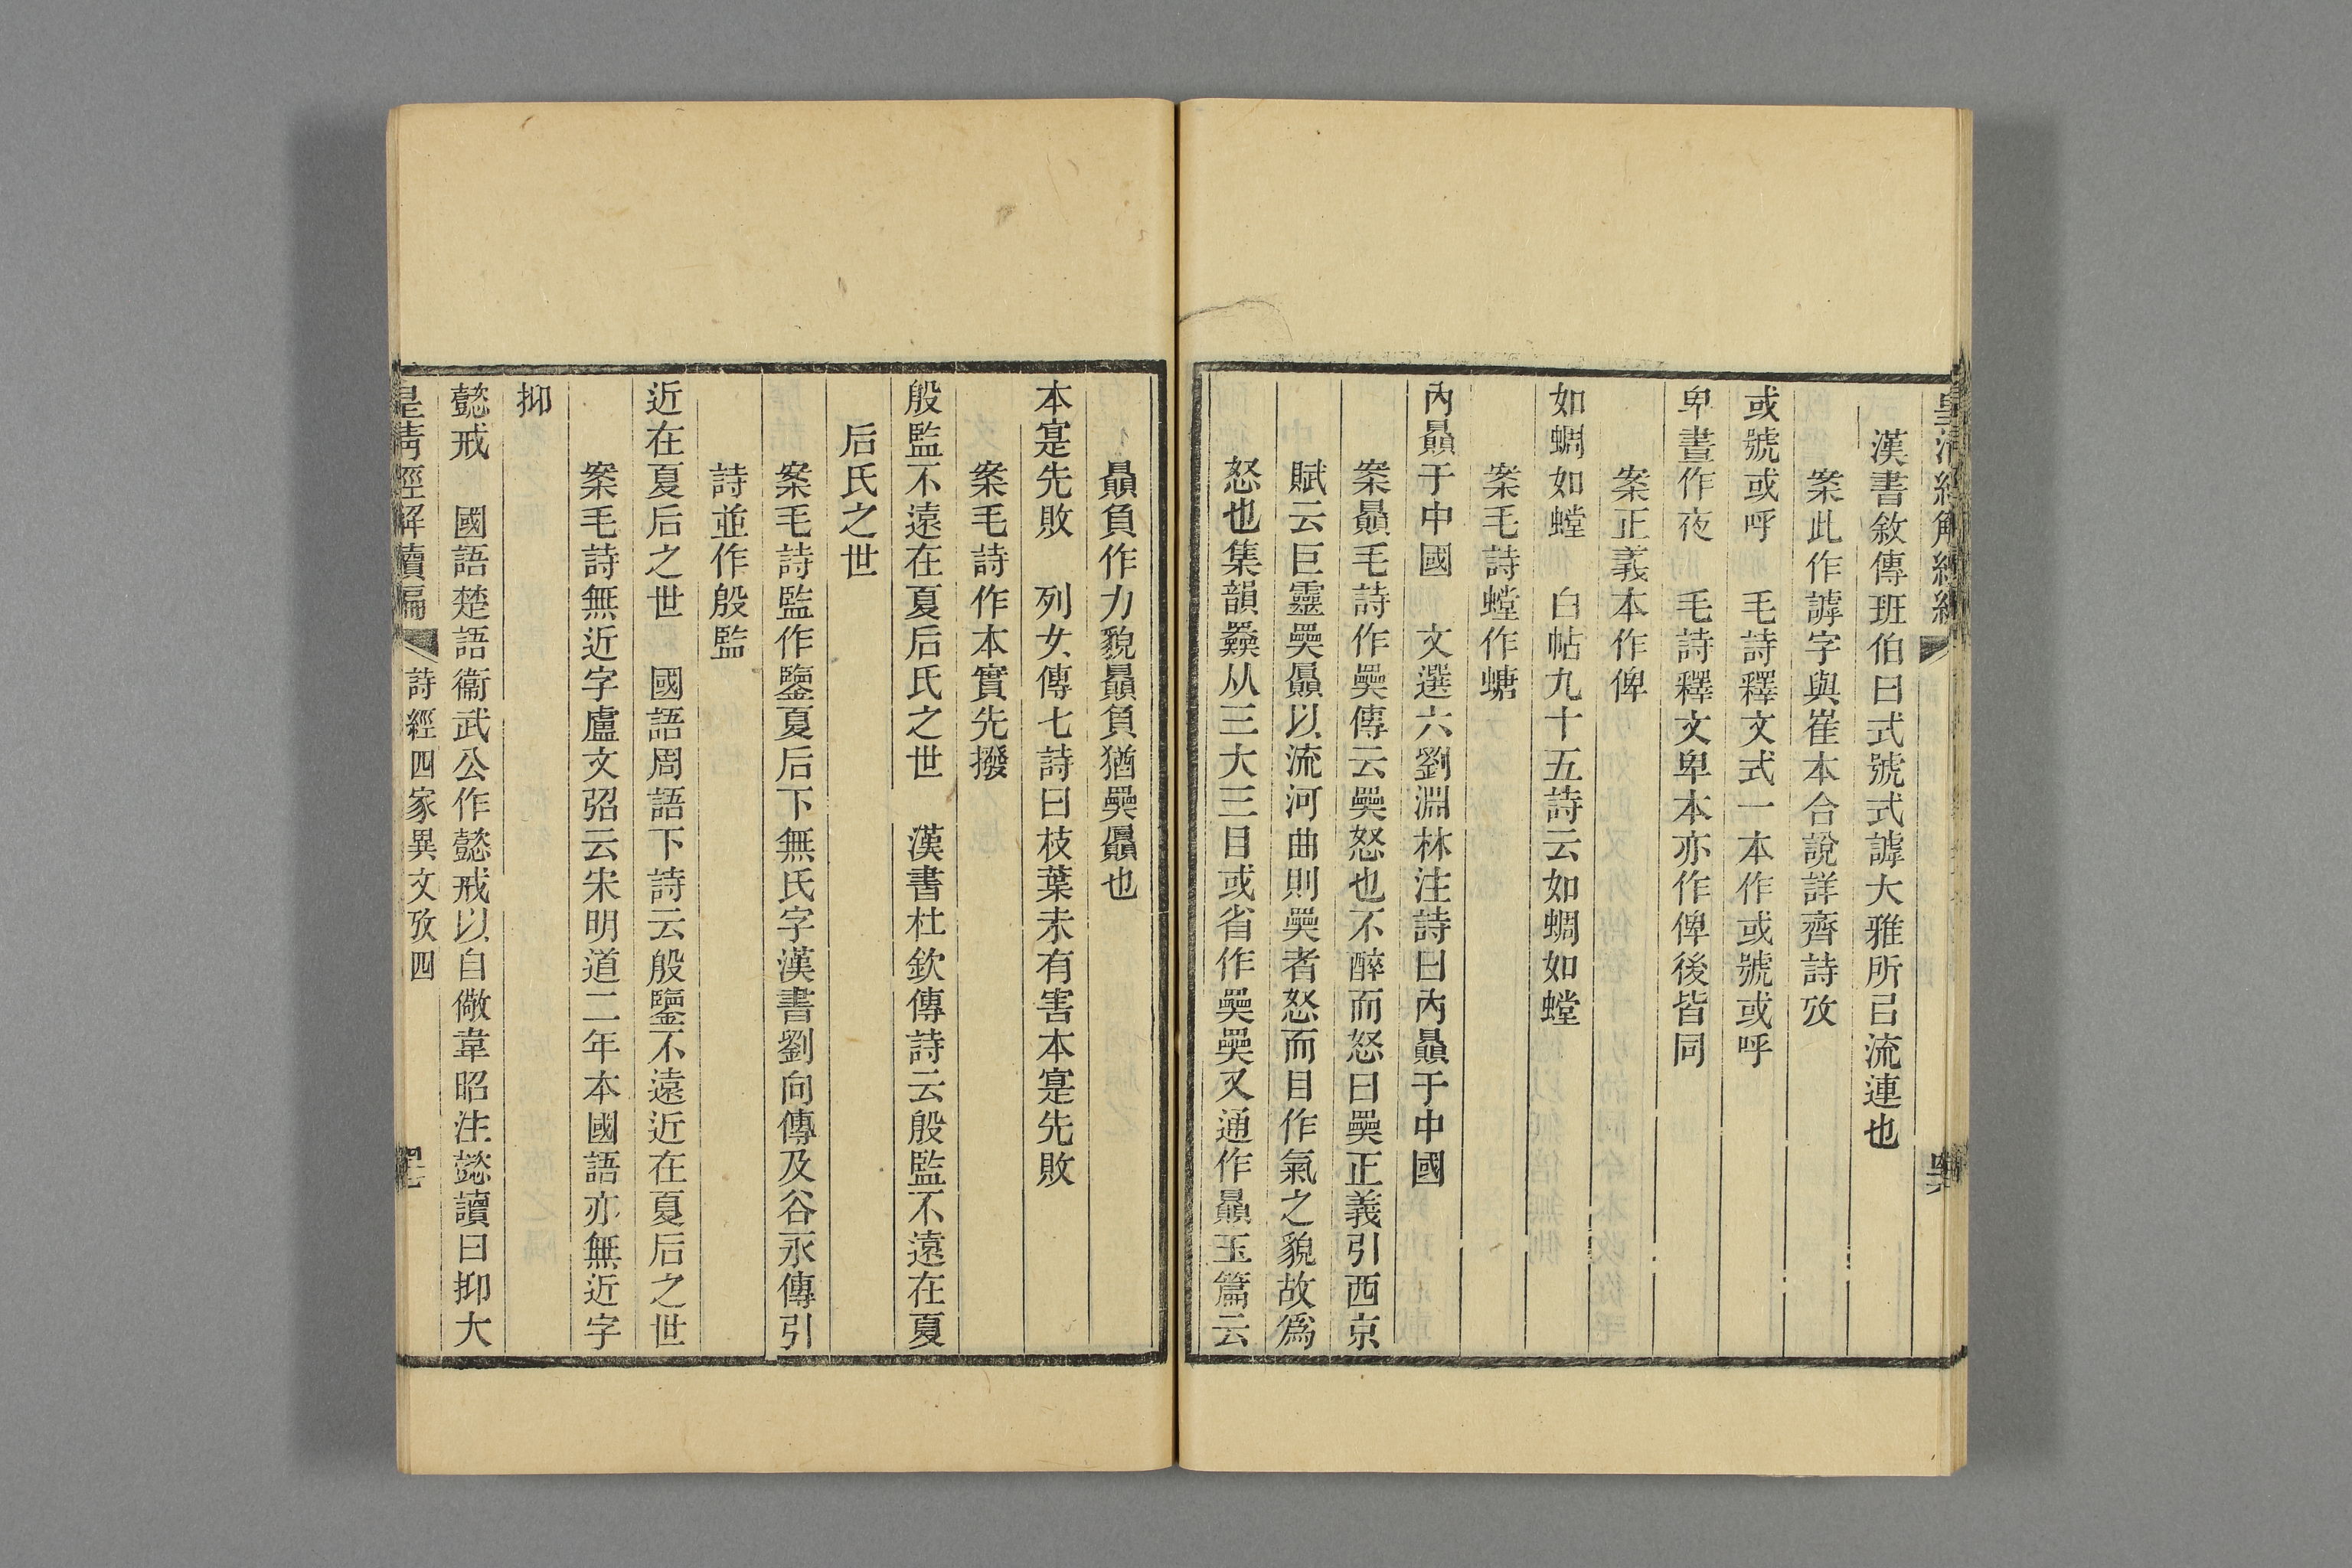 漢書敘傳班伯曰式號式謼大雅所㠯流連也
案此作謼字與崔本合說詳齊詩攷
或號或呼　毛詩釋文式一本作或號或呼
卑晝作夜　毛詩釋文卑本亦作俾後皆同
案正義本作俾
如蜩如螳　白帖九十五詩云如蜩如螳
案毛詩螳作螗
內奰于中國　文選六劉淵林注詩曰內奰于中國
案奰毛詩作奰傳云奰怒也不醉而怒曰奰正義引西京
賦云巨靈奰屭以流河曲則奰者怒而目作氣之貌故爲
怒也集韻從三大三目或省作奰奰又通作贔玉篇云
贔負作力貌贔負猶奰屭也
本寔先敗　列女傳七詩曰枝葉未有害本寔先敗
案毛詩作本實先撥
殷監不遠在夏后氏之世　漢書杜欽傳詩云殷監不遠在夏
后氏之世
案毛詩監作鑒夏后下無氏字漢書劉向傳及谷永傳引
詩並作殷監
近在夏后之世　國語周語下詩云殷鑒不遠近在夏后之世
案毛詩無近字盧文弨云宋明道二年本國語亦無近字
抑
懿戒　國語楚語衞武公作懿戒以自儆韋昭注懿讀曰抑大
皇清經解續編　詩經四家異文攷四